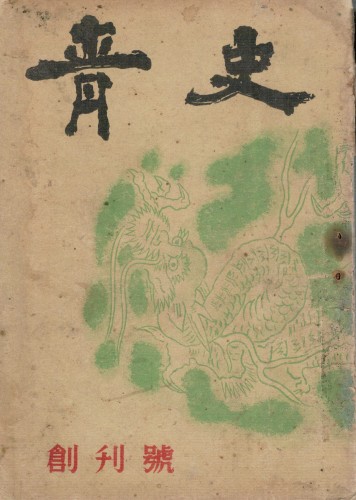 靑史
創刊號